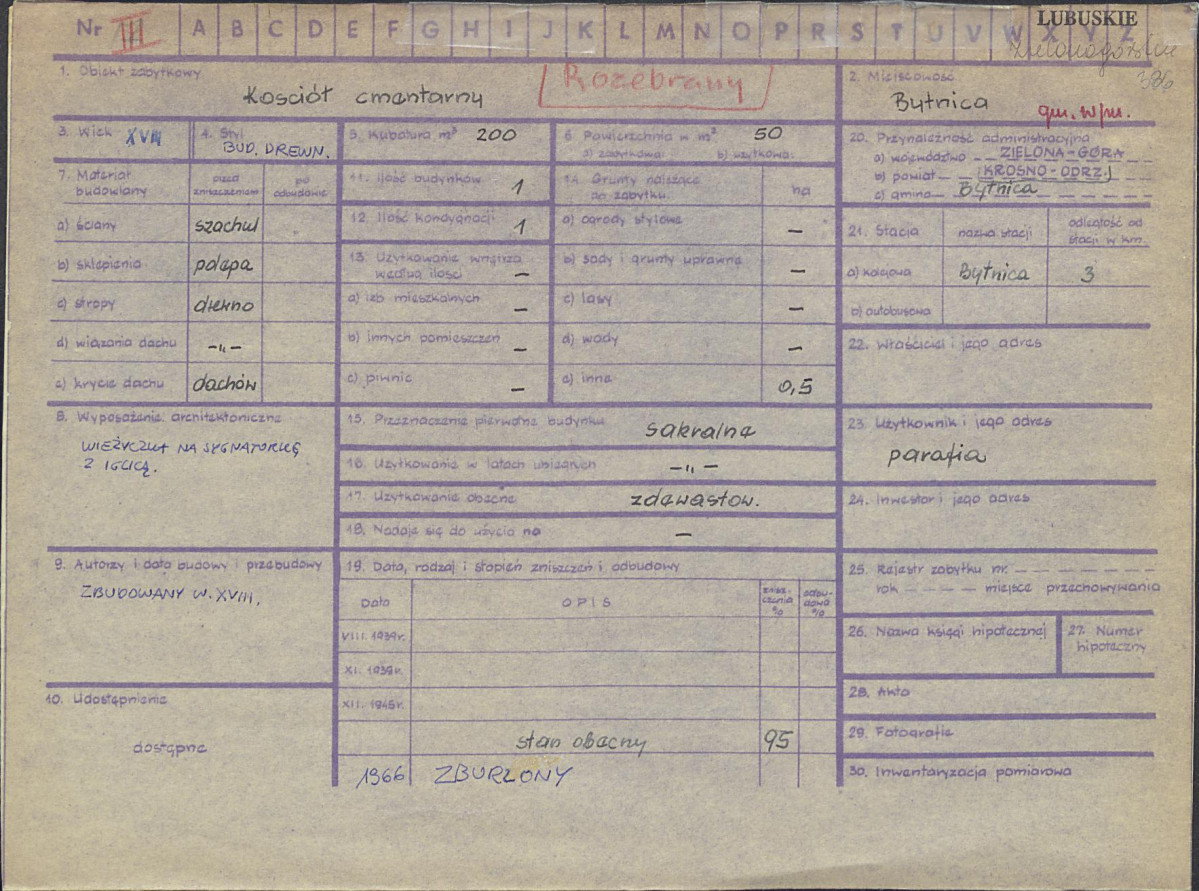 Nr III A B C D E F G H I J K L M N O P R S T U V W X Y Z
LUBUSKIE
zielonogórskie
386
1. Obiekt zabytkowy
Kościół cmentarny
Rozebrany
2. Miejscowość
Bytnica
gm. w/m.
3. Wiek XVIII
4. Styl
BUD. DREWN.
5. Kubatura m³ 200
6 Powierzchnia w m² 50
a) zabytkowa: b) użytkowa:
7. Materiał budowlany
przed zniszczeniem
po odbudowie
a) ściany szachul
b) sklepienia połapa
c) stropy drewno
d) wiązania dachu –„–
e) krycie dachu dachów
8. Wyposażenie architektoniczne
WIEŻYCZKA NA SYGNATURKĘ
Z IGLICĄ.
9. Autorzy i data budowy i przebudowy
ZBUDOWANY W. XVIII.
10. Udostępnienie
dostępne
11. Ilość budynków 1
12. Ilość kondygnacji 1
13. Użytkowanie wnętrza
według ilości –
a) izb mieszkalnych –
b) innych pomieszczeń –
c) piwnic –
14. Grunty należące
do zabytku: ha
a) ogrody stylowe –
b) sady i grunty uprawne –
c) lasy –
d) wody –
e) inne 0,5
15. Przeznaczenie pierwotne budynku sakralne
16. Użytkowanie w latach ubiegłych –„–
17. Użytkowanie obecne zdewastow.
18. Nadaje się do użycia na –
19. Data, rodzaj i stopień zniszczeń i odbudowy
Data OPIS znisz-czenia % odbu-dowa %
VIII. 1939r.
XI. 1939r.
XII. 1945r.
stan obecny 95
1966 ZBURZONY
20. Przynależność administracyjna
a) województwo ZIELONA-GÓRA
b) powiat KROSNO-ODRZ.
c) gmina Bytnica
21. Stacja nazwa stacji odległość od stacji w km.
a) kolejowa Bytnica 3
b) autobusowa
22. Właściciel i jego adres
23. Użytkownik i jego adres
parafia
24. Inwestor i jego adres
25. Rejestr zabytku nr.
rok – – – – miejsce przechowywania
26. Nazwa księgi hipotecznej
27. Numer
hipoteczny
28. Akta
29. Fotografie
30. Inwentaryzacja pomiarowa